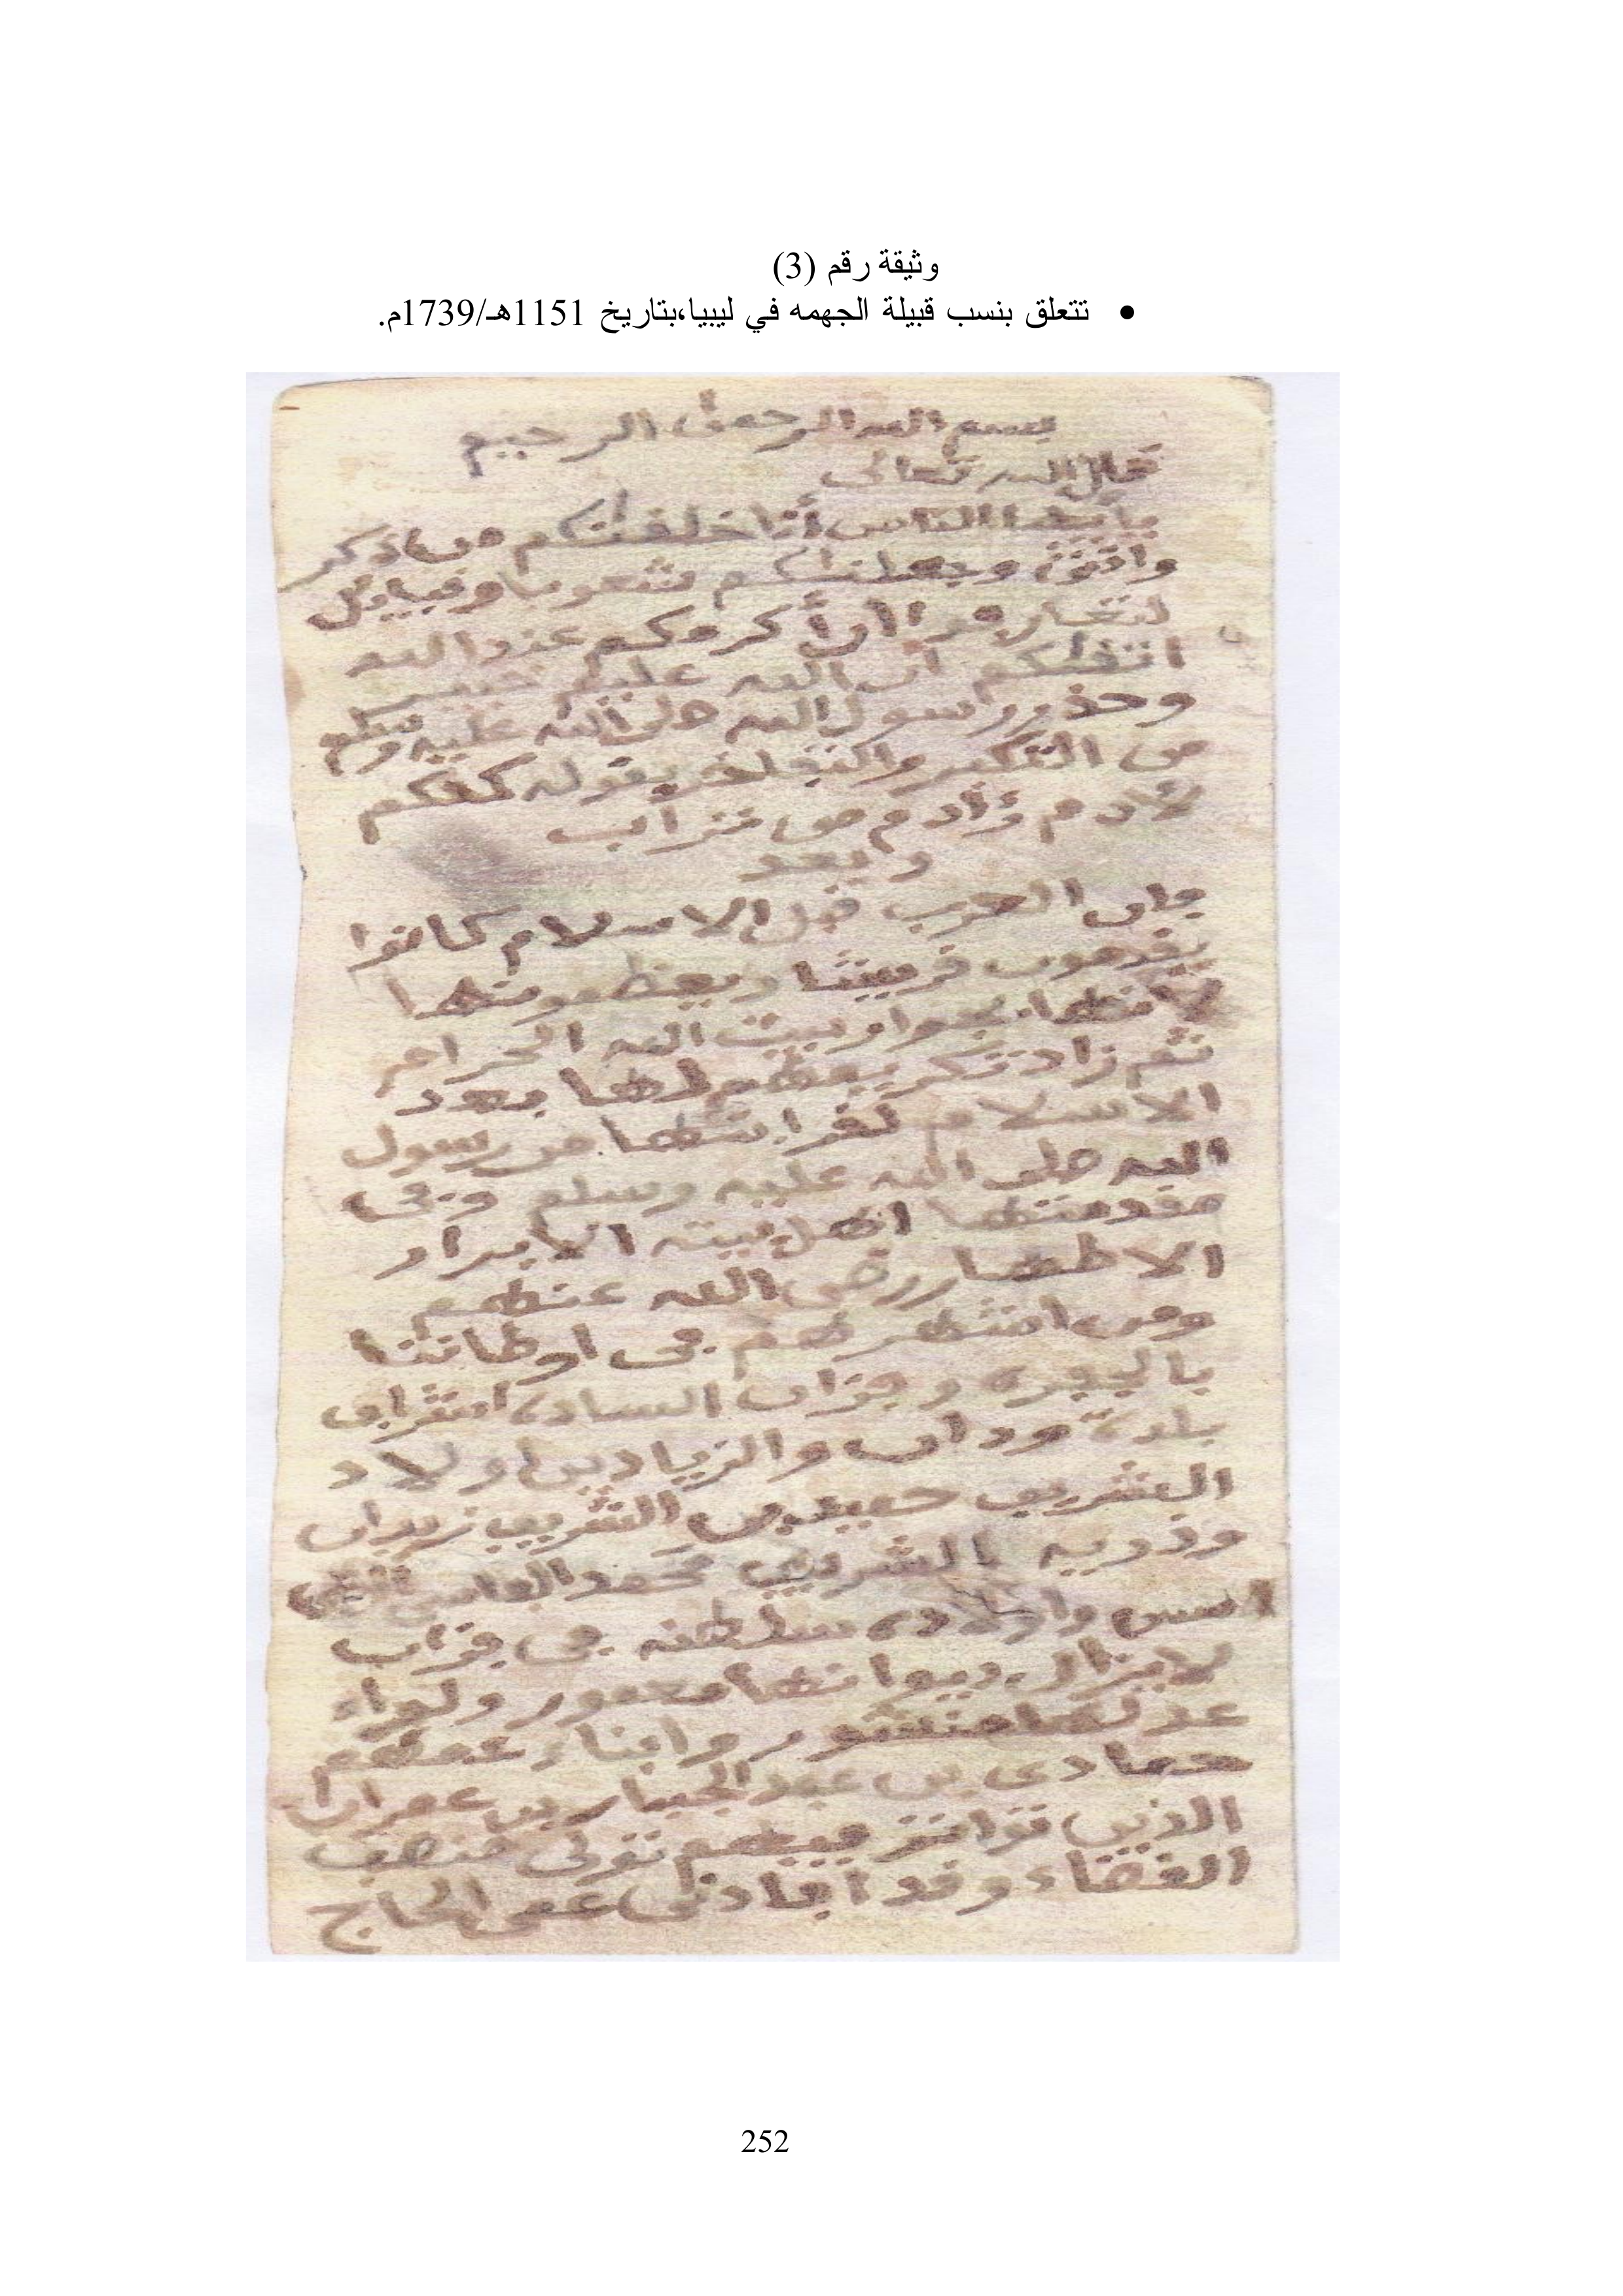 وثيقة رقم (3)
• تتعلق بنسب قبيلة الجهمه في ليبيا،بتاريخ 1151هـ/1739م.
بسم الله الرحمن الرحيم
قال الله تعالى
يأيها الناس أنا خلقنكم من ذكر
وانثى وجعلنكم شعوبا وقبايل
لتعارفوا ان أكرمكم عند الله
اتقكم ان الله عليم خبير
وحذر رسول الله صلى الله عليه وسلم
من التكبر والتفاخر بقوله كلكم
لأدم وأدم من تراب
وبعد
فان العرب قبل الاسلام كانوا
يقدمون قريشا ويعظمونها
لانها بجوار بيت الله الحرام
ثم زاد تعظيمها بعد
الاسلام لقرابتها من رسول
الله صلى الله عليه وسلم وفى
مقدمتها اهل بيته الابرار
الاطهار رضى الله عنهم
ومن اشهرهم فى اوطاننا
بالجفره وفزان الساده اشراف
بلدة ودان والزيادين اولاد
الشريف حميد بن الشريف زيدان
وذريه الشريف محمد الفاسى
اسس واولاده سلطنه فى فزان
لا يزال ديوانها معمور ولواء
عدلها منشور وابناء عمهم
حمادى بن عبد الجبار بن عمران
الذين تواتر فيهم تولى منصب
القضاء وقد افادنى عمى الحاج
252